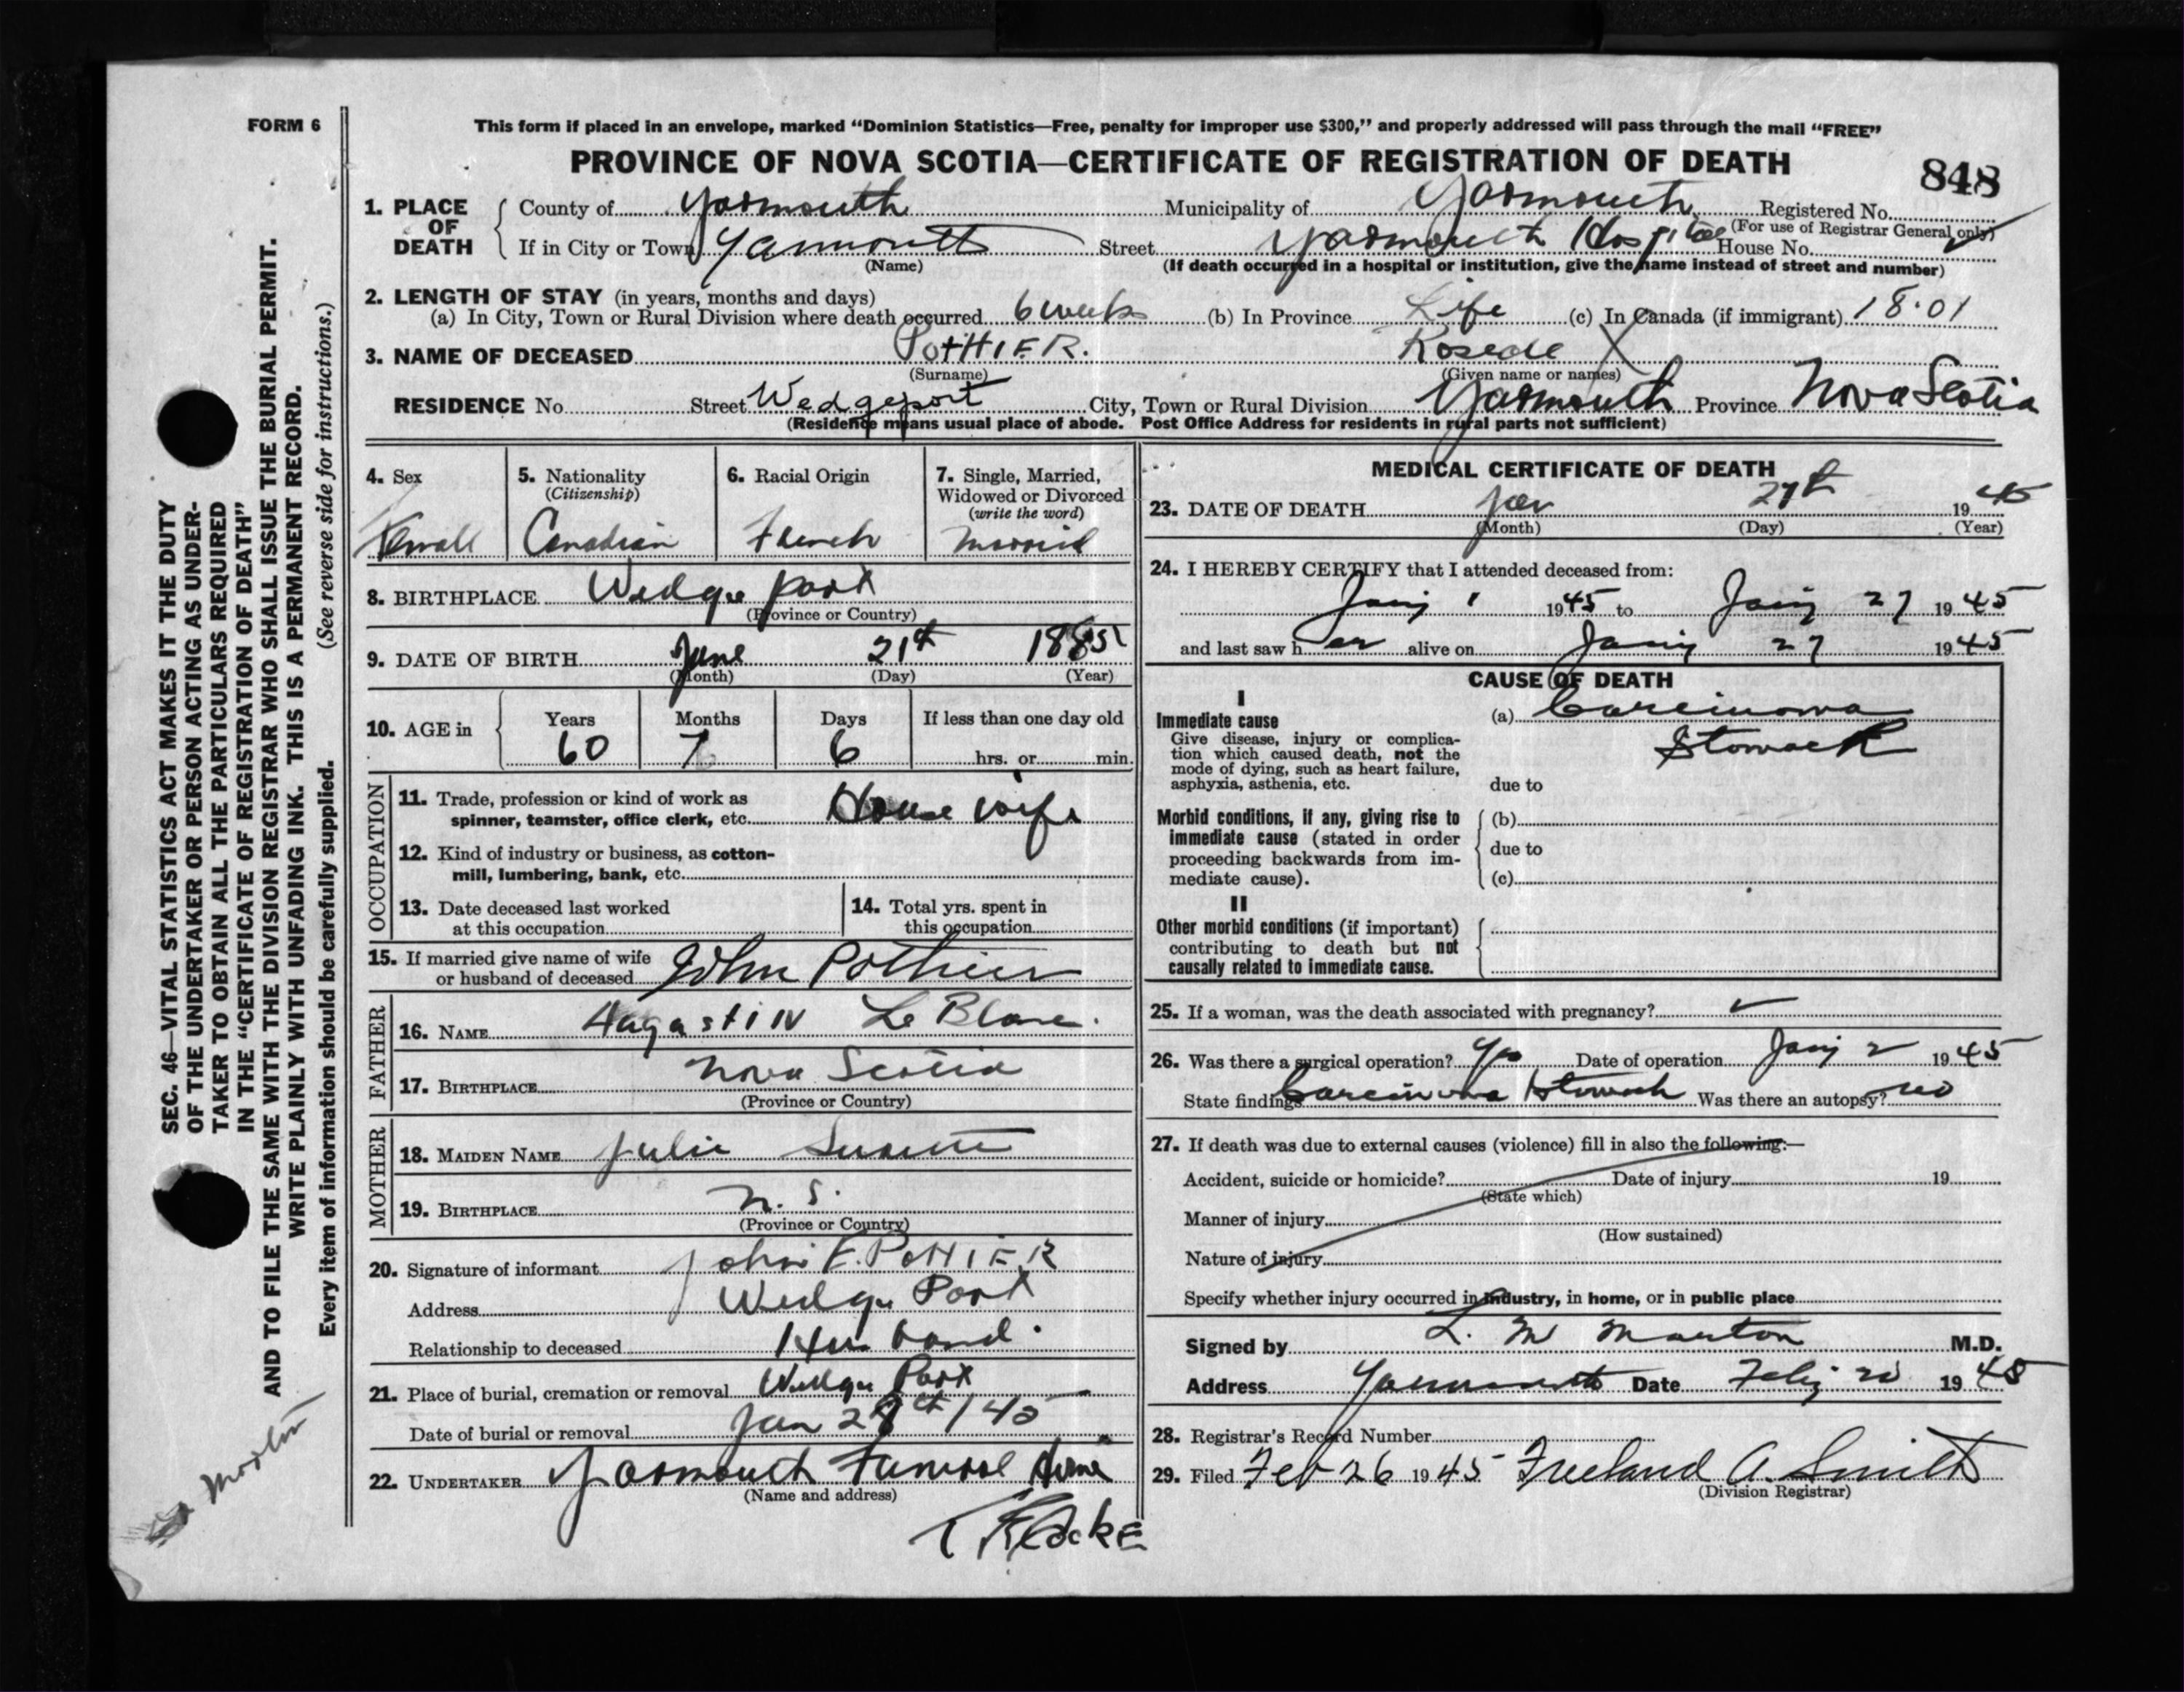 FORM 6
This form if placed in an envelope, marked “Dominion Statistics—Free, penalty for improper use $300,” and properly addressed will pass through the mail “FREE”
PROVINCE OF NOVA SCOTIA—CERTIFICATE OF REGISTRATION OF DEATH
848
1. PLACE OF DEATH
County of Yarmouth Municipality of Yarmouth Registered No.
(For use of Registrar General only)
If in City or Town Yarmouth Street Yarmouth Hospital House No.
(Name) (If death occurred in a hospital or institution, give the name instead of street and number)
2. LENGTH OF STAY (in years, months and days)
(a) In City, Town or Rural Division where death occurred 6 weeks (b) In Province Life (c) In Canada (if immigrant) 18·01
3. NAME OF DECEASED POTHIER. X
(Surname) (Given name or names)
RESIDENCE No. Street Wedgeport City, Town or Rural Division Yarmouth Province Nova Scotia
(Residence means usual place of abode. Post Office Address for residents in rural parts not sufficient)
4. Sex
Female
5. Nationality
(Citizenship)
Canadian
6. Racial Origin
French
7. Single, Married, Widowed or Divorced
(write the word)
Married
8. BIRTHPLACE Wedge port
(Province or Country)
9. DATE OF BIRTH June 21st
(Month) (Day) (Year)
10. AGE in
Years Months Days If less than one day old
60 7 6 hrs. or min.
OCCUPATION
11. Trade, profession or kind of work as
spinner, teamster, office clerk, etc. House wife
12. Kind of industry or business, as cotton-
mill, lumbering, bank, etc.
13. Date deceased last worked
at this occupation
14. Total yrs. spent in
this occupation
15. If married give name of wife
or husband of deceased John Pothier
FATHER
16. NAME Augastin Le Blanc.
17. BIRTHPLACE Nova Scotia
(Province or Country)
MOTHER
18. MAIDEN NAME Julie
19. BIRTHPLACE N. S.
(Province or Country)
20. Signature of informant John E. POTHIER
Address Wedge Port
Relationship to deceased Husband.
21. Place of burial, cremation or removal Wedge Port
Date of burial or removal Jan
22. UNDERTAKER Yarmouth Funeral Home
(Name and address)
MEDICAL CERTIFICATE OF DEATH
23. DATE OF DEATH Jan 27th 1945
(Month) (Day) (Year)
24. I HEREBY CERTIFY that I attended deceased from:
Jany 1 1945 to Jany 27 1945
and last saw her alive on Jany 27 1945
CAUSE OF DEATH
I
Immediate cause
Give disease, injury or complica-
tion which caused death, not the
mode of dying, such as heart failure,
asphyxia, asthenia, etc.
(a) Carcinoma
Stomach
due to
Morbid conditions, if any, giving rise to
immediate cause (stated in order
proceeding backwards from im-
mediate cause).
(b)
due to
(c)
II
Other morbid conditions (if important)
contributing to death but not
causally related to immediate cause.
25. If a woman, was the death associated with pregnancy?
26. Was there a surgical operation? Yes Date of operation Jany 2 1945
State findings Carcinoma Stomach Was there an autopsy? no
27. If death was due to external causes (violence) fill in also the following:—
Accident, suicide or homicide? Date of injury 19
(State which)
Manner of injury
(How sustained)
Nature of injury
Specify whether injury occurred in industry, in home, or in public place
Signed by L. M. Morton M.D.
Address Yarmouth Date Feby 20 1945
28. Registrar's Record Number
29. Filed Feb 26 1945 Freeland A. Smith
(Division Registrar)
SEC. 46—VITAL STATISTICS ACT MAKES IT THE DUTY
OF THE UNDERTAKER OR PERSON ACTING AS UNDER-
TAKER TO OBTAIN ALL THE PARTICULARS REQUIRED
IN THE “CERTIFICATE OF REGISTRATION OF DEATH”
AND TO FILE THE SAME WITH THE DIVISION REGISTRAR WHO SHALL ISSUE THE BURIAL PERMIT.
WRITE PLAINLY WITH UNFADING INK. THIS IS A PERMANENT RECORD.
Every item of information should be carefully supplied. (See reverse side for instructions.)
Morton